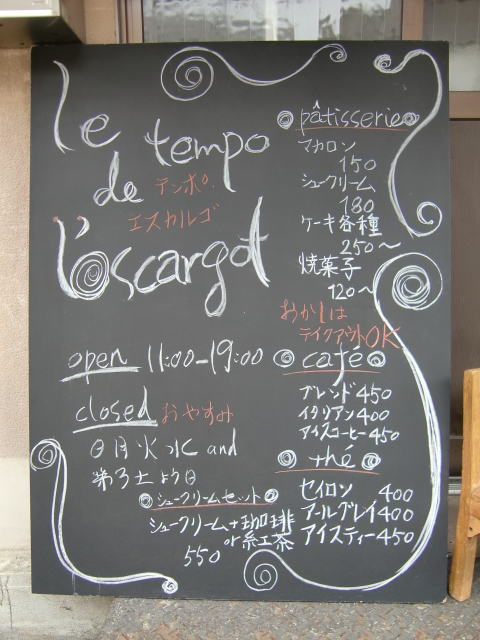 le tempo
de テンポ.
エスカルゴ
l'escargot
open 11:00-19:00
closed おやすみ
日月火水 and
第3土よう日
シュークリームセット
シュークリーム+珈琲
or紅茶
550
pâtisserie
マカロン
150
シュークリーム
180
ケーキ各種
250〜
焼菓子
120〜
おかしは
テイクアウトOK
café
ブレンド450
イタリアン400
アイスコーヒー450
thé
セイロン 400
アールグレイ400
アイスティー450